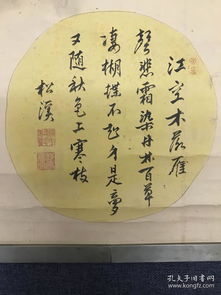 江空木落雁
聲悲霜染丹林百草
淒蝴蝶不知身是夢
又隨秋色上寒枝
松溪
孔夫子旧书网